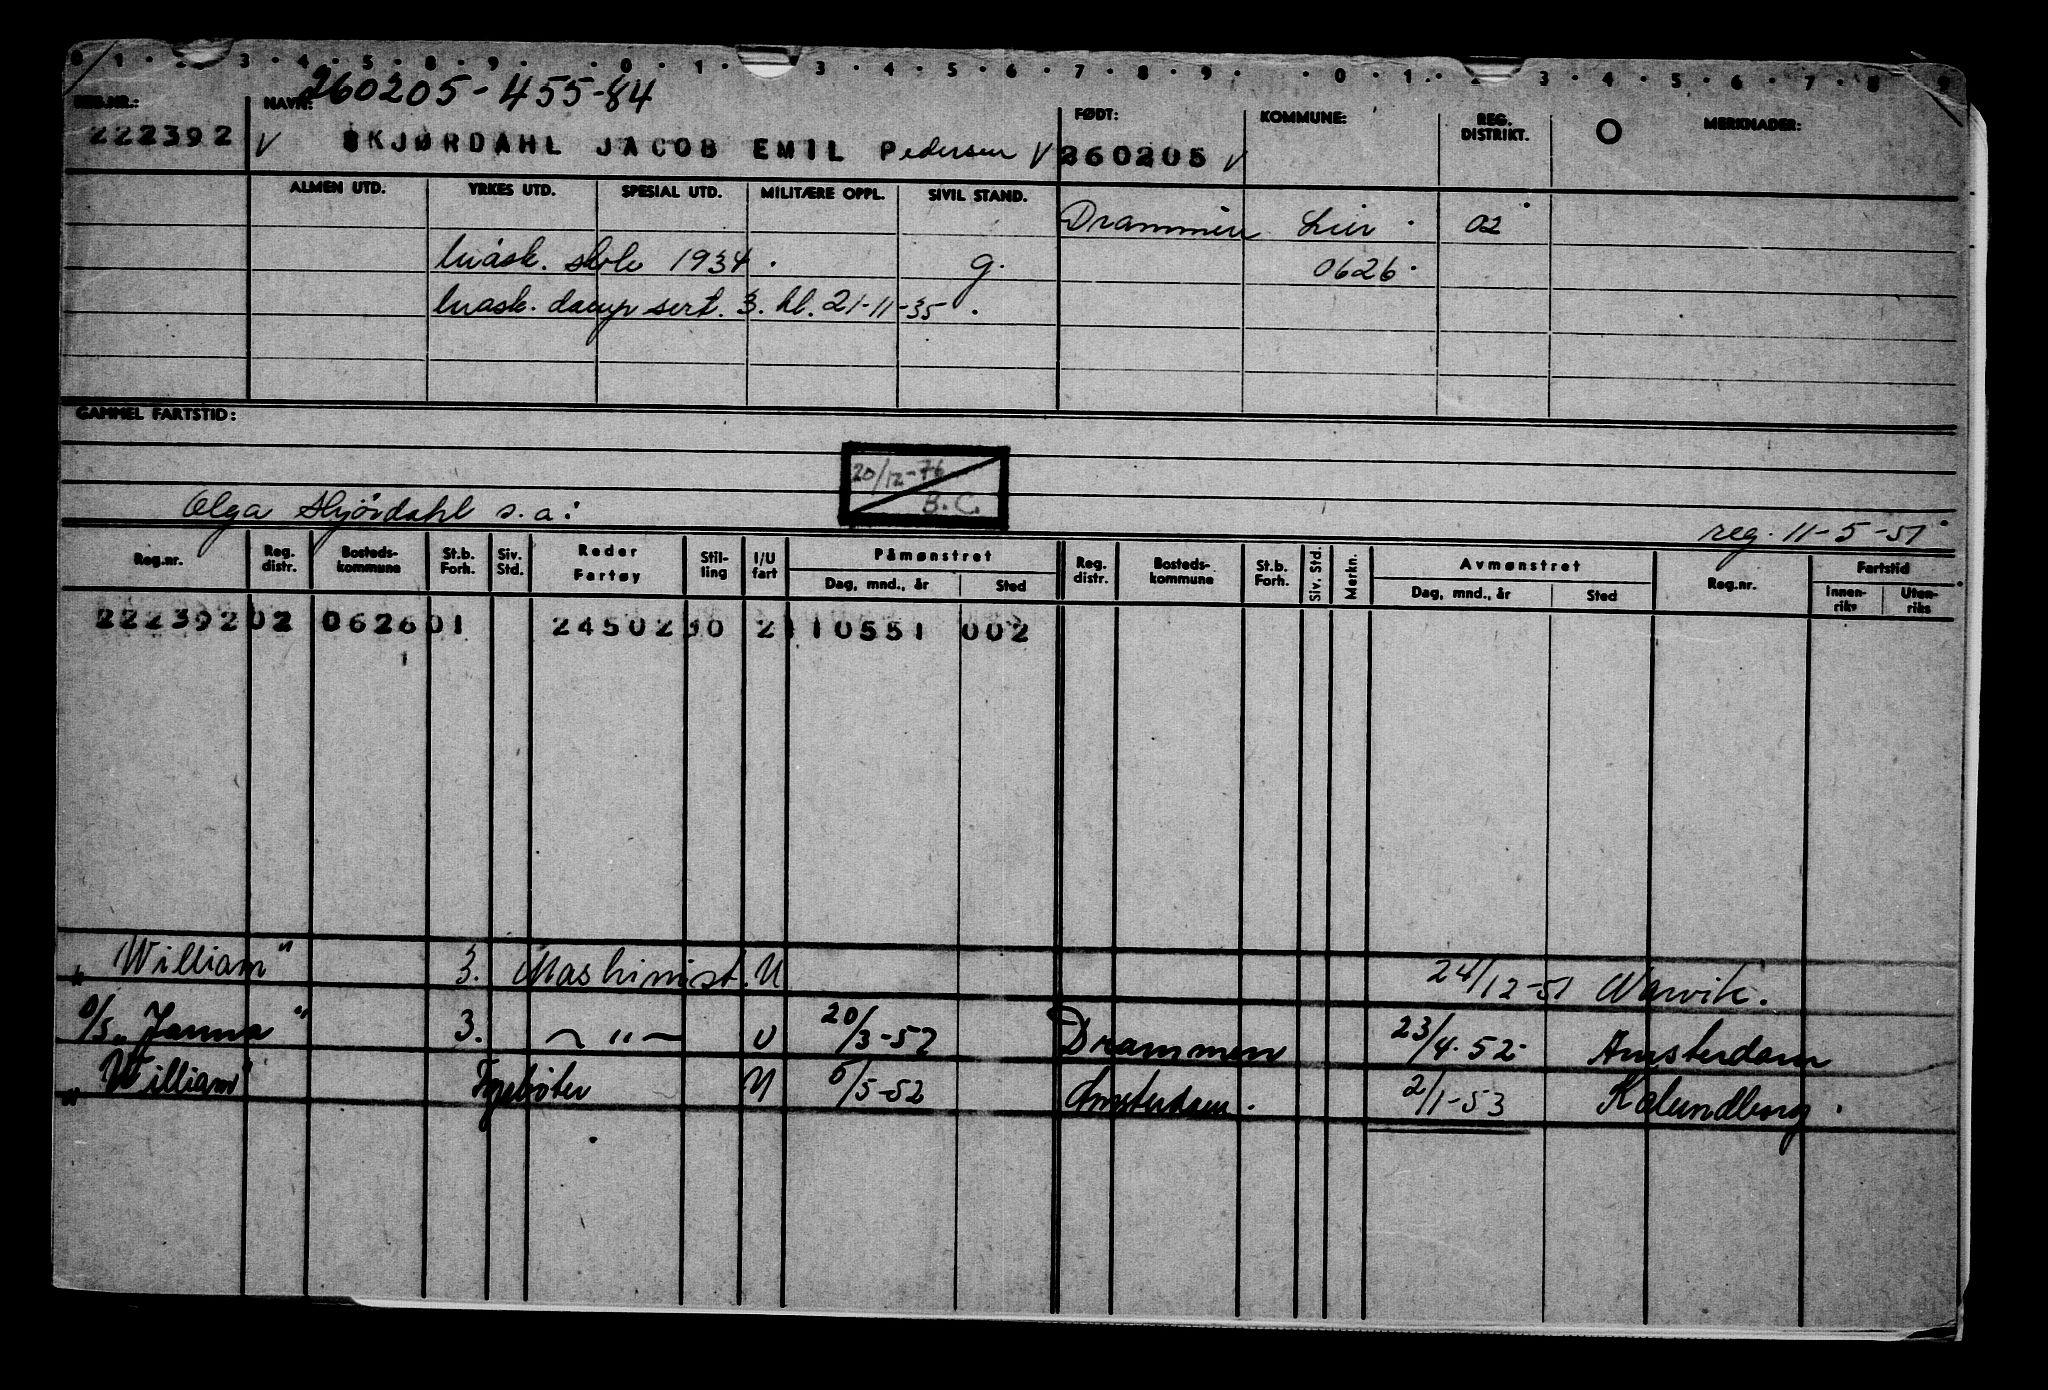 0 1 2 3 4 5 6 7 8 9 0 1 3 4 5 6 7 8 9 0 1 3 4 5 6 7 8 9
260205-455-84
REG.NR.: NAVN: FØDT: KOMMUNE: REG. DISTRIKT. O MERKNADER:
222392 V SKJØRDAHL JACOB EMIL Pedersen V 260205 V
ALMEN UTD. YRKES UTD. SPESIAL UTD. MILITÆRE OPPL. SIVIL STAND.
Drammen Lier 02
Mask. skole 1934. g. 0626
Mask. damp sert. 3. kl. 21-11-35.
GAMMEL FARTSTID:
20/12-76
B.C.
Olga Skjørdahl s.a. reg. 11-5-51
Reg.nr. Reg. distr. Bosteds-kommune St.b. Forh. Siv. Std. Reder Fartøy Stil-ling I/U fart Påmønstret Dag, mnd., år Sted Reg. distr. Bosteds-kommune St.b. Forh. Siv. Std. Merkn. Avmønstret Dag, mnd., år Sted Reg.nr. Fartstid Innen-riks Uten-riks
222392 02 0626 01 24502 30 2 110551 002
"William" 3. Maskinist. U 24/12-51 Narvik.
D/S "Janna" 3. – " – U 20/3-52 Drammen 23/4-52 Amsterdam
"William" Fyrbøter U 6/5-52 Amsterdam. 2/1-53 Kalundborg.